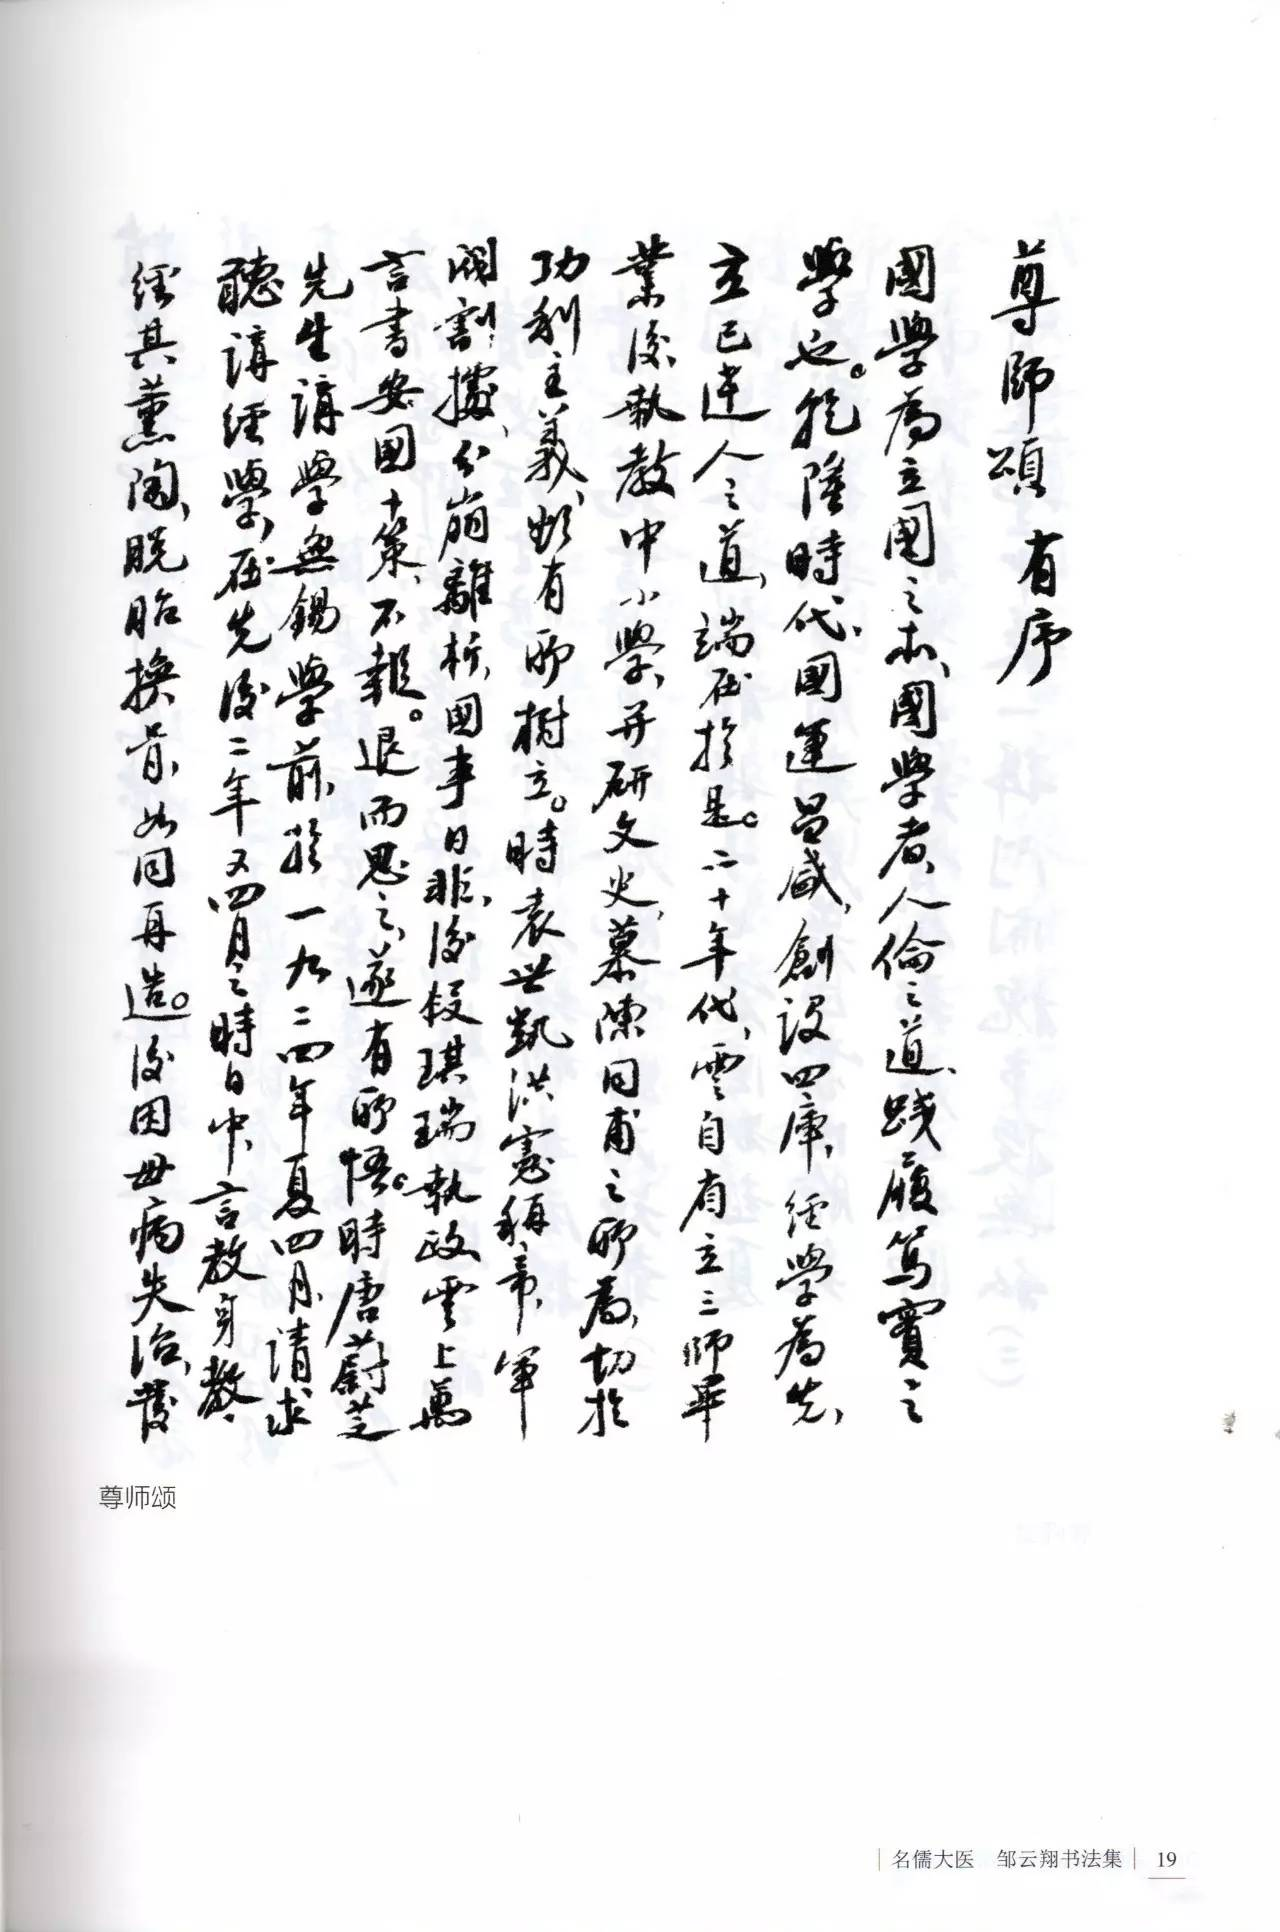 尊師頌 有序
國學為立國之本、國學者、人倫之道、践履篤實之
學也。乾隆時代、國運昌盛、創設四庫、經學為先、
立己達人之道、端在於是。二十年代、雲自省立三師畢
業後、執教中小學、并研文史、慕陳同甫之所為、切於
功利主義、頗有所樹立。時袁世凱洪憲稱帝、軍
閥割據、分崩離析、國事日非、後段琪瑞執政、雲上萬
言書安國十策、不報。退而思之、遂有所悟。時唐蔚芝
先生講學無錫學前、於一九二四年夏四月、請求
聽講經學、在先後二年又四月之時日中、言教身教、
經其薰陶、脱胎換骨、如同再造。後因母病失治、發
尊师颂
名儒大医 邹云翔书法集 19